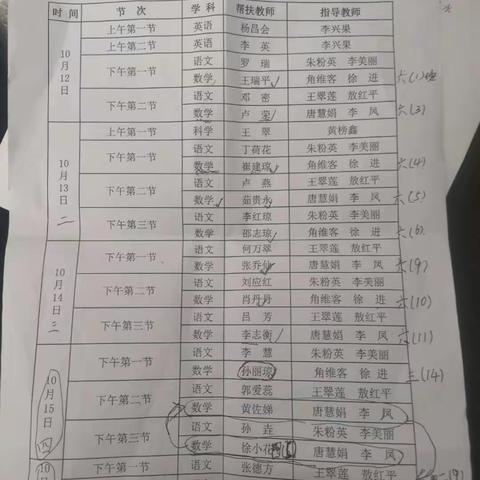 时 间 节 次 学 科 帮扶教师 指导教师
10月12日
上午第一节 英语 杨昌会 李兴果
上午第二节 英语 李 英 李兴果
下午第一节 语文 罗 瑞 朱粉英 李美丽
数学 王瑞平 角维客 徐 进 六(1)
下午第二节 语文 邓 密 王翠莲 敖红平
数学 卢 荣 唐慧娟 李 凤 六(3)
10月13日 二
上午第一节 科学 王 翠 黄榜鑫
下午第一节 语文 丁荷花 朱粉英 李美丽
数学 崔建琼 角维客 徐 进 六(4)
下午第二节 语文 卢 燕 王翠莲 敖红平
数学 茹贵水 唐慧娟 李 凤 六(5)
下午第三节 语文 李红琼 朱粉英 李美丽
数学 邵志琼 角维客 徐 进 六(6)
10月14日 三
下午第一节 语文 何万翠 王翠莲 敖红平
数学 张乔仙 唐慧娟 李 凤 六(9)
下午第二节 语文 刘应红 朱粉英 李美丽
数学 肖丹丹 角维客 徐 进 六(10)
下午第三节 语文 吕 芳 王翠莲 敖红平
数学 李志衡 唐慧娟 李 凤 六(11)
10月15日 四
下午第一节 语文 李 慧 朱粉英 李美丽
数学 孙丽琼 角维客 徐 进 三(14)
下午第二节 语文 郭爱蕊 王翠莲 敖红平
数学 黄佐娣 唐慧娟 李 凤
下午第三节 语文 孙 垚 朱粉英 李美丽
数学 徐小花 唐慧娟 李 凤
10
下午第一节 语文 张德方 王翠莲 敖红平